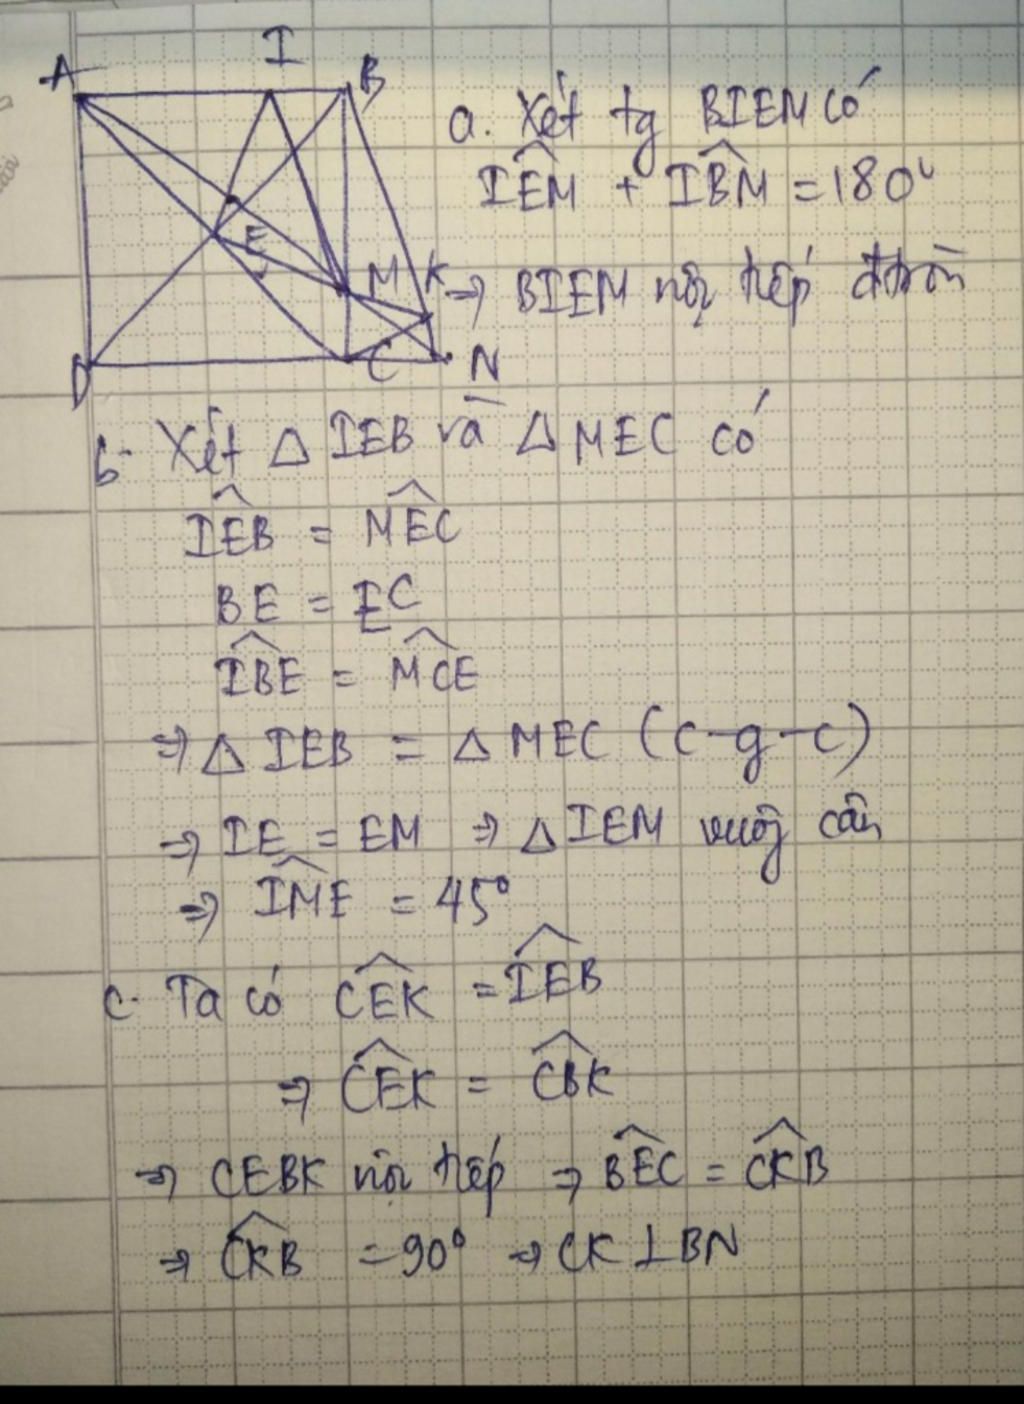 A I B
E
M K
D C N
a. Xét tg BIEM có
IEM + IBM = 180°
=> BIEM nội tiếp đtròn
b. Xét △ IEB và △ MEC có
IEB = MEC
BE = EC
IBE = MCE
=> △ IEB = △ MEC (c-g-c)
=> IE = EM => △ IEM vuông cân
=> IME = 45°
c. Ta có CEK = IEB
=> CEK = CBK
=> CEBK nội tiếp => BEC = CKB
=> CKB = 90° => CK ⊥ BN